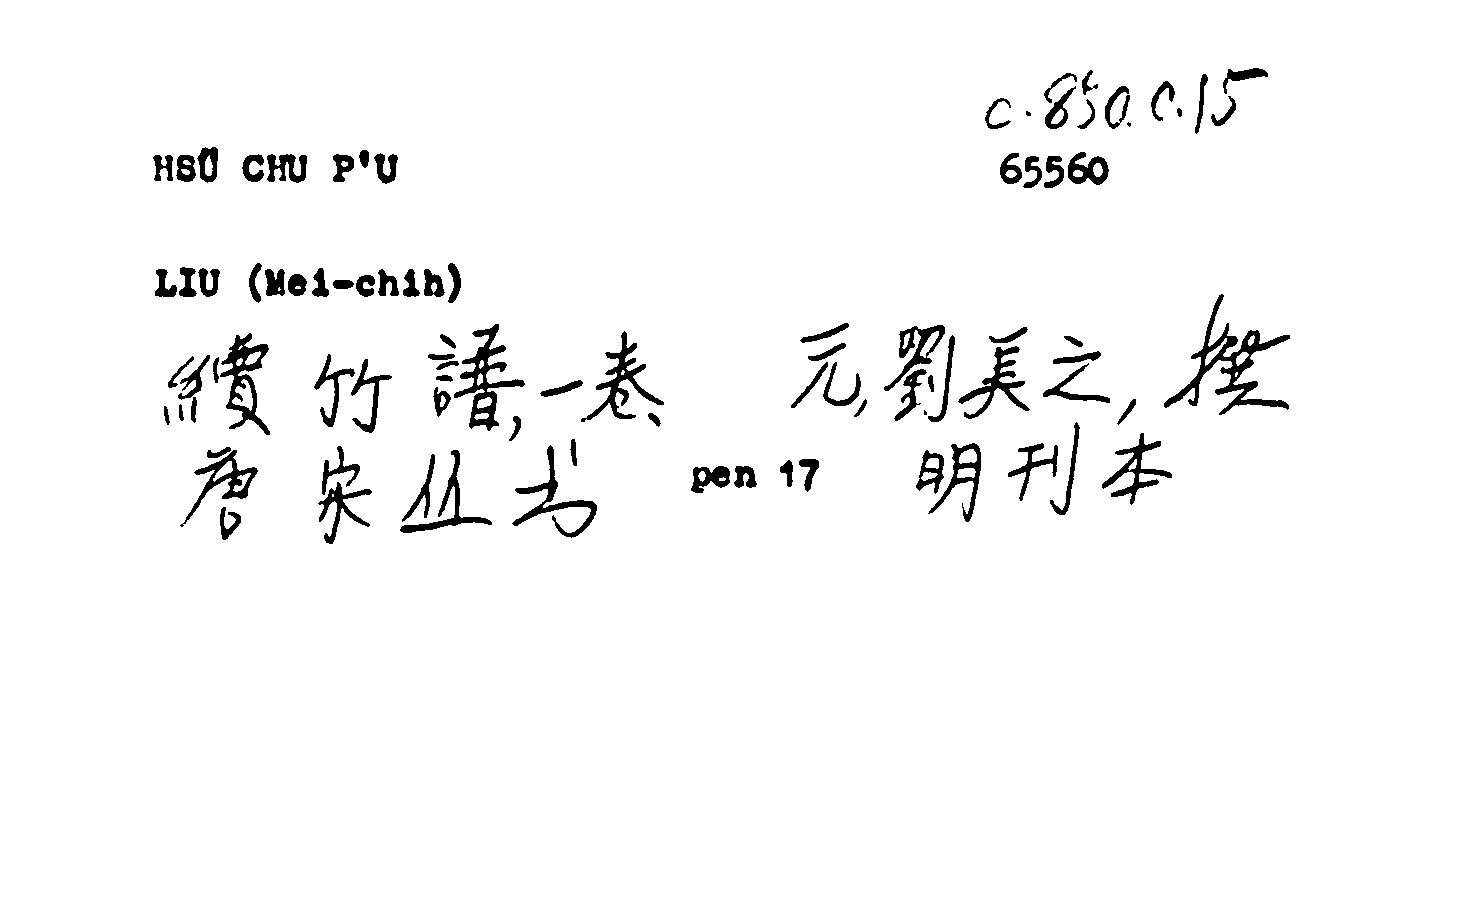 c.850.c.15
HSÜ CHU P'U 65560
LIU (Mei-chih)
續竹譜,一卷、 元,劉美之,撰
唐宋丛书 pen 17 明刊本